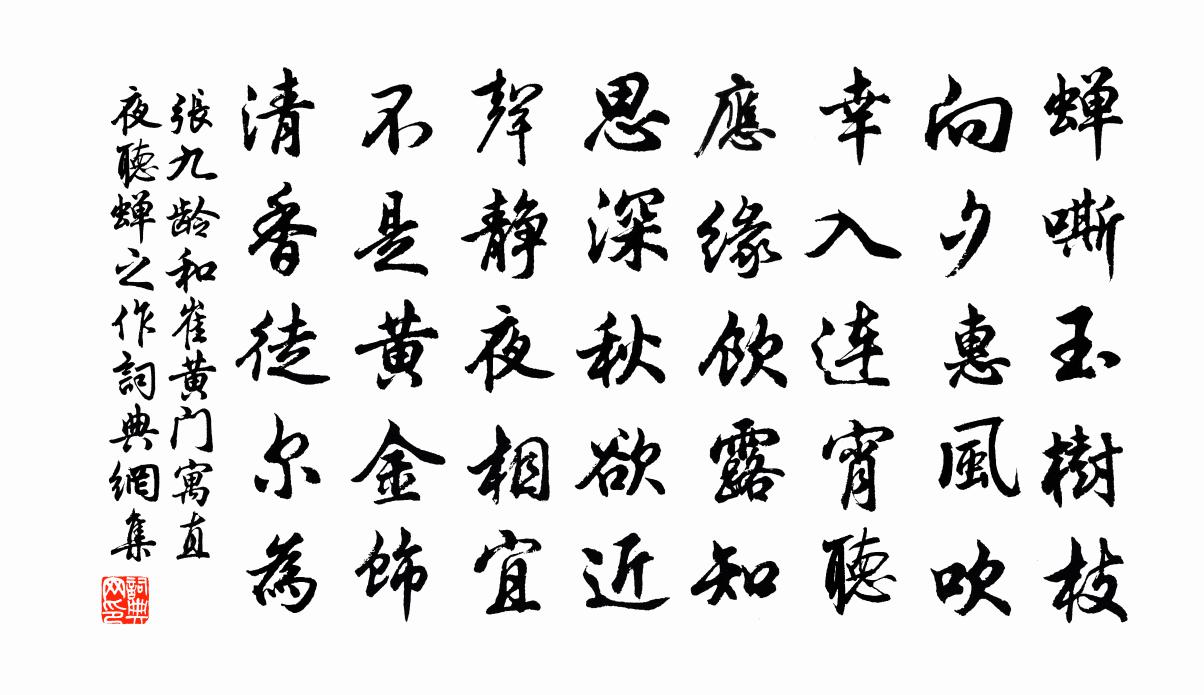 蝉嘶玉樹枝
向夕惠風吹
幸入連宵聽
應緣飲露知
思深秋欲近
聲靜夜相宜
不是黃金飾
清香徒尔為
張九齡和崔黃门寓直
夜聽蝉之作詞典網集
詞典网印